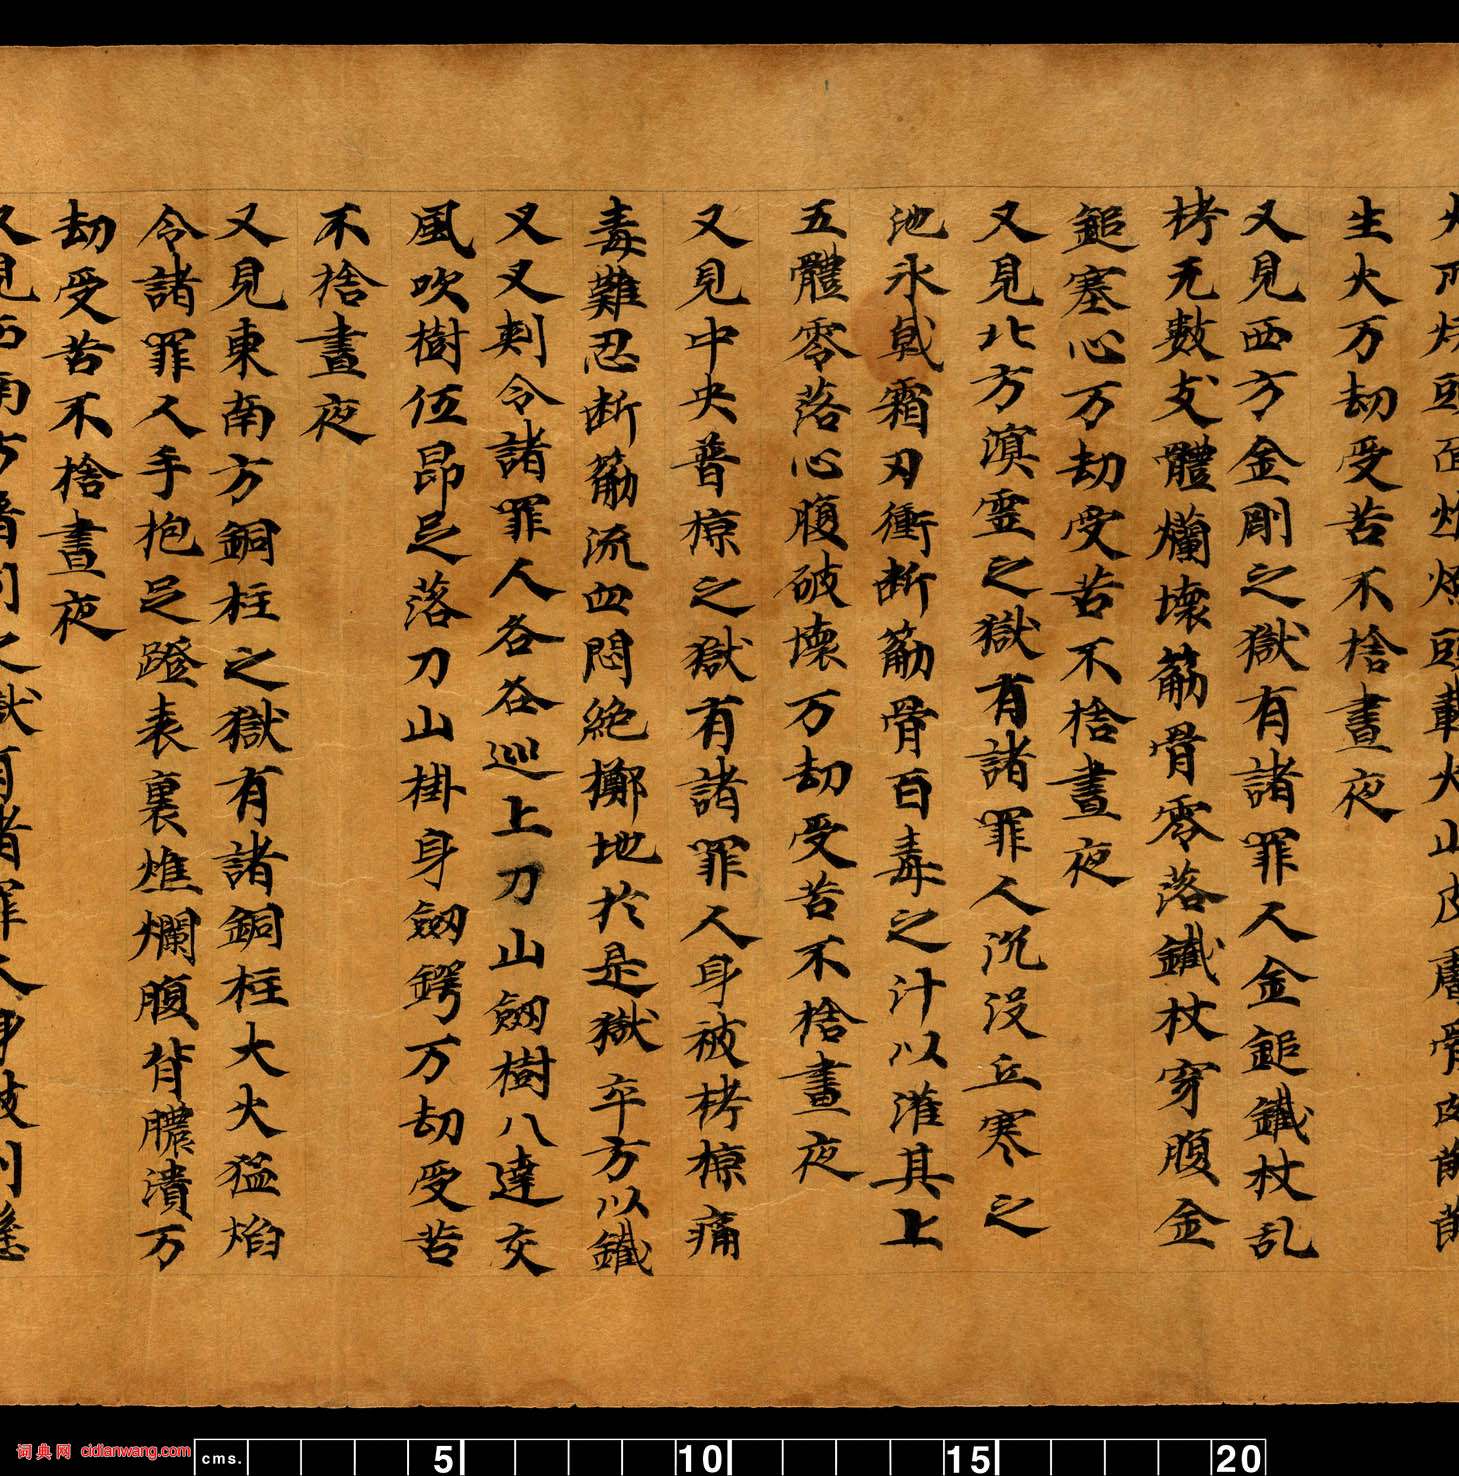 生火万劫受苦不捨晝夜
又見西方金剛之獄有諸罪人金鎚鐵杖乱
栲无數支體爛壞筋骨零落鐵杖穿腹金
鎚塞心万劫受苦不捨晝夜
又見北方溟霊之獄有諸罪人沉没丘寒之
池氷戟霜刃衝断筋骨百毒之汁以灌其上
五體零落心腹破壞万劫受苦不捨晝夜
又見中央普椋之獄有諸罪人身被栲椋痛
毒難忍断筋流血悶絶擲地於是獄卒方以鐵
叉叉刾令諸罪人各各巡上刀山劔樹八達交
風吹樹伍昂足落刀山掛身劔鍔万劫受苦
不捨晝夜
又見東南方銅柱之獄有諸銅柱大火猛焰
令諸罪人手抱足蹬表裏燋爛腹背膿潰万
劫受苦不捨晝夜
词典网 cidianwang.com
cms. 5 10 15 20